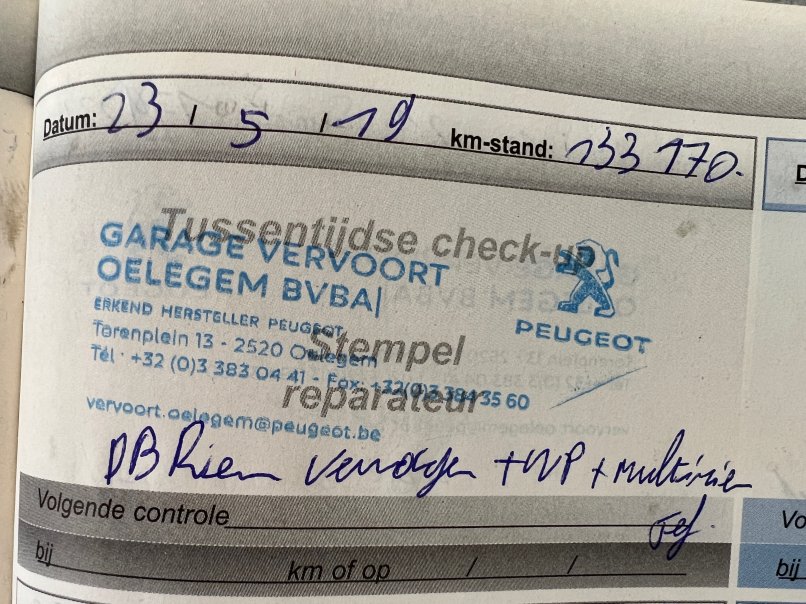 Datum: 23 / 5 / 19 km-stand: 133 170.
Tussentijdse check-up
GARAGE VERVOORT
OELEGEM BVBA
ERKEND HERSTELLER PEUGEOT
Torenplein 13 - 2520 Oelegem
Tél. +32 (0)3 383 04 41 - Fax +32(0)3 384 35 60
vervoort.oelegem@peugeot.be
PEUGEOT
Stempel
reparateur
DB Riem vervangen + WP + Multiriem
Volgende controle
bij km of op / /
Vo
bij
D